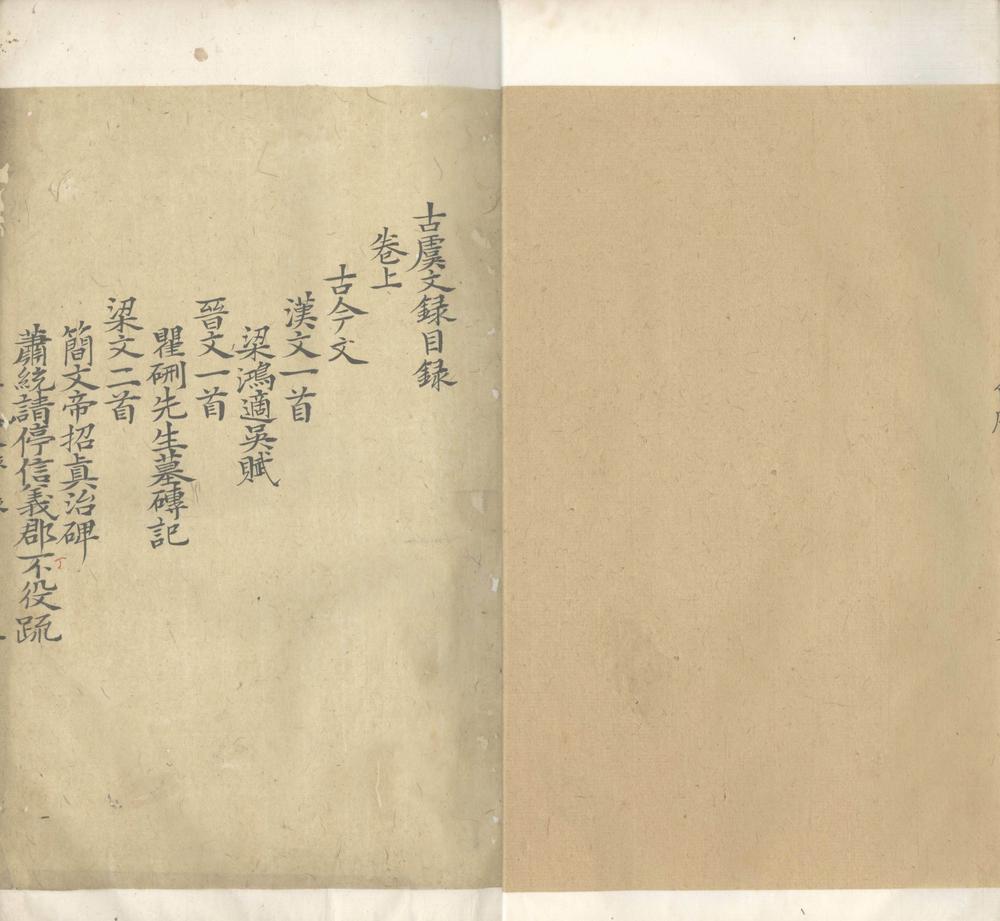 古虞文録目録
卷上
古今文
漢文一首
梁鴻適吳賦
晉文一首
瞿硎先生墓磚記
梁文二首
簡文帝招真治碑
蕭統請停信義郡不役疏
丁